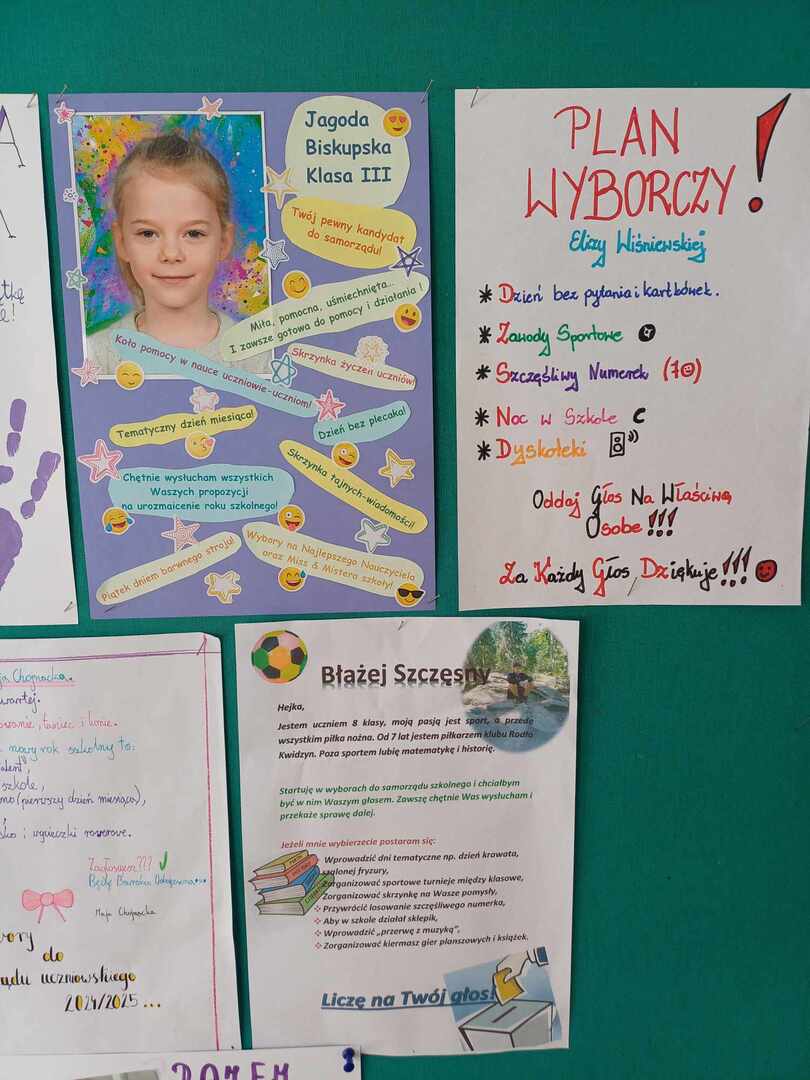 Jagoda
Biskupska
Klasa III
Twój pewny kandydat
do samorządu!
Miła, pomocna, uśmiechnięta...
I zawsze gotowa do pomocy i działania !
Koło pomocy w nauce uczniowie-uczniom!
Skrzynka życzeń uczniów!
Tematyczny dzień miesiąca!
Dzień bez plecaka!
Chętnie wysłucham wszystkich
Waszych propozycji
na urozmaicenie roku szkolnego!
Skrzynka tajnych-wiadomości!
Piątek dniem barwnego stroju!
Wybory na Najlepszego Nauczyciela
oraz Miss & Mistera szkoły!
PLAN
WYBORCZY !
Elizy Wiśniewskiej
* Dzień bez pytania i kartkówek.
* Zawody Sportowe
* Szczęśliwy Numerek (7)
* Noc w Szkole
* Dyskoteki
Oddaj Głos Na Właściwą
Osobe !!!
Za Każdy Głos Dziękuje!!!
Maja Chojnacka
taniec i
nowy rok szkolny to:
szkole,
(pierwszy dzień miesiąca),
i wycieczki rowerowe.
Zagłosujesz???
Będę Bardzo
Maja Chojnacka
do
uczniowskiego
2024/2025...
Błażej Szczęsny
Hejka,
Jestem uczniem 8 klasy, moją pasją jest sport, a przede
wszystkim piłka nożna. Od 7 lat jestem piłkarzem klubu Rodło
Kwidzyn. Poza sportem lubię matematykę i historię.
Startuję w wyborach do samorządu szkolnego i chciałbym
być w nim Waszym głosem. Zawszę chętnie Was wysłucham i
przekaże sprawę dalej.
Jeżeli mnie wybierzecie postaram się:
Wprowadzić dni tematyczne np. dzień krawata,
szalonej fryzury,
Zorganizować sportowe turnieje między klasowe,
Zorganizować skrzynkę na Wasze pomysły,
Przywrócić losowanie szczęśliwego numerka,
Aby w szkole działał sklepik,
Wprowadzić „przerwę z muzyką”,
Zorganizować kiermasz gier planszowych i książek.
Liczę na Twój głos!